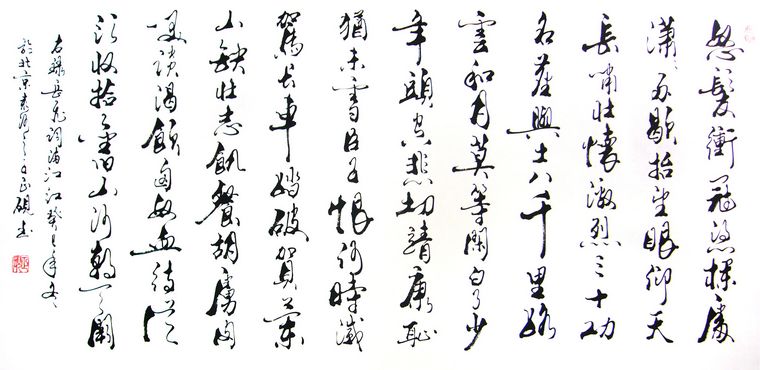 怒髮衝冠憑欄處
瀟瀟雨歇抬望眼仰天
長嘯壯懷激烈三十功
名塵與土八千里路
雲和月莫等閑白了少
年頭空悲切靖康恥
猶未雪臣子恨何時滅
駕長車踏破賀蘭
山缺壯志飢餐胡虜肉
笑談渴飲匈奴血待從
頭收拾舊山河朝天闕
右錄岳飛詞滿江紅癸巳年冬
於北京 硯書